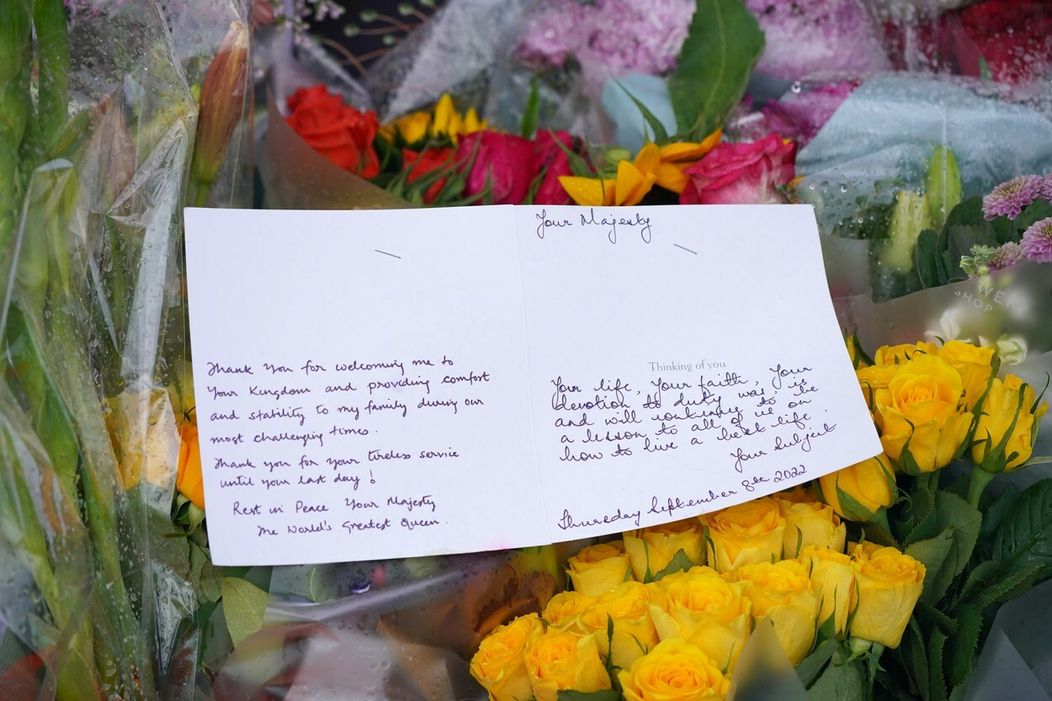 Thank You for welcoming me to
Your Kingdom and providing comfort
and stability to my family during our
most challenging times.
Thank you for Your tireless service
until your last day!
Rest in Peace Your Majesty
The World's Greatest Queen.
Your Majesty
Thinking of you
Your life, Your faith, Your
devotion to duty was, is
and will continue to be
a lesson to all of us on
how to live a best life.
Your Subject
Thursday September 8th 2022
SHOP